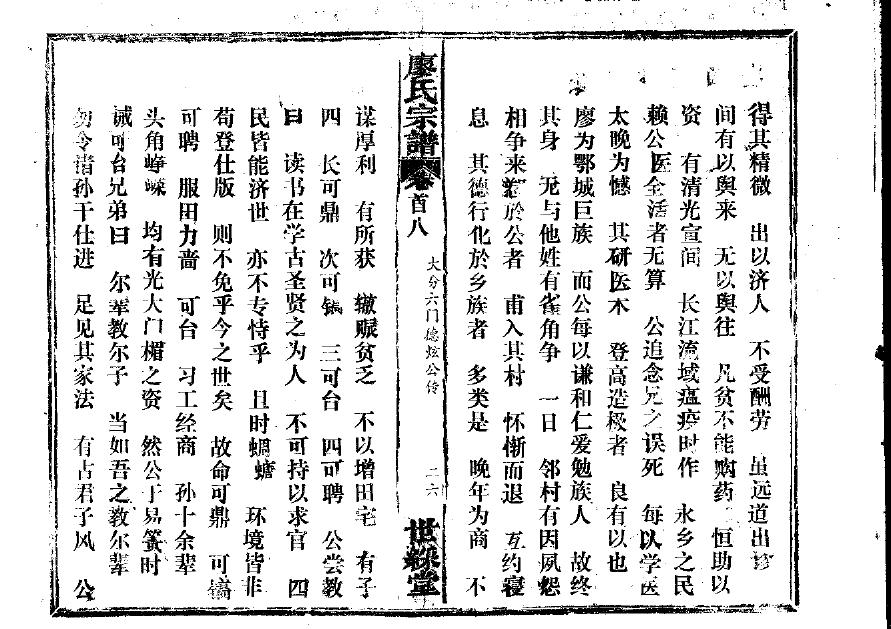 得其精微 出以济人 不受酬劳 虽远道出诊
间有以舆来 无以舆往 凡贫不能购药 恒助以
资 有清光宣间 长江流域瘟疫时作 永乡之民
赖公医全活者无算 公追念兄之误死 每以学医
太晚为憾 其研医术 登高造极者 良有以也
廖为鄂城巨族 而公每以谦和仁爱勉族人 故终
其身 无与他姓有雀角争 一日 邻村有因夙怨
相争来愬於公者 甫入其村 怀惭而退 互约寝
息 其德行化於乡族者 多类是 晚年为商 不
廖氏宗譜 卷首八 大分六门德炫公传 二六 世綵堂
谋厚利 有所获 辙赈贫乏 不以增田宅 有子
四 长可鼎 次可镐 三可台 四可聘 公尝教
曰 读书在学古圣贤之为人 不可持以求官 四
民皆能济世 亦不专恃乎 且时蜩螗 环境皆非
荀登仕版 则不免乎今之世矣 故命可鼎 可镐
可聘 服田力啬 可台 习工经商 孙十余辈
头角峥嵘 均有光大门楣之资 然公于易箦时
诫可台兄弟曰 尔辈教尔子 当如吾之教尔辈
勿令诸孙干仕进 足见其家法 有古君子风 公